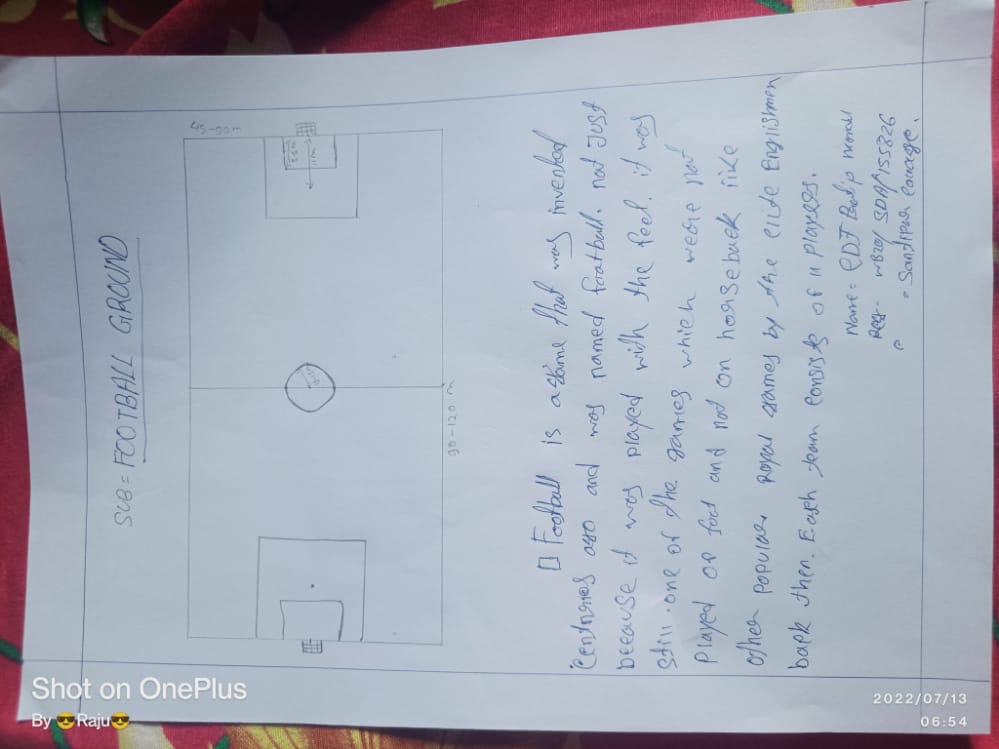 SUB = FOOTBALL GROUND
45-90 m
5.5m
11m
90-120 m
Football is a game that was invented
centuries ago and was named football. not Just
because it was played with the feet. it was
still. one of the games which weare not
Played of foot and not on horseback like
other popular royal games by the elite Englishmen
back then. Each team consists of 11 players.
Name =
Reg - WB20/SDA/155826
Santipur College.
Shot on OnePlus
By 😎Raju😎
2022/07/13
06:54